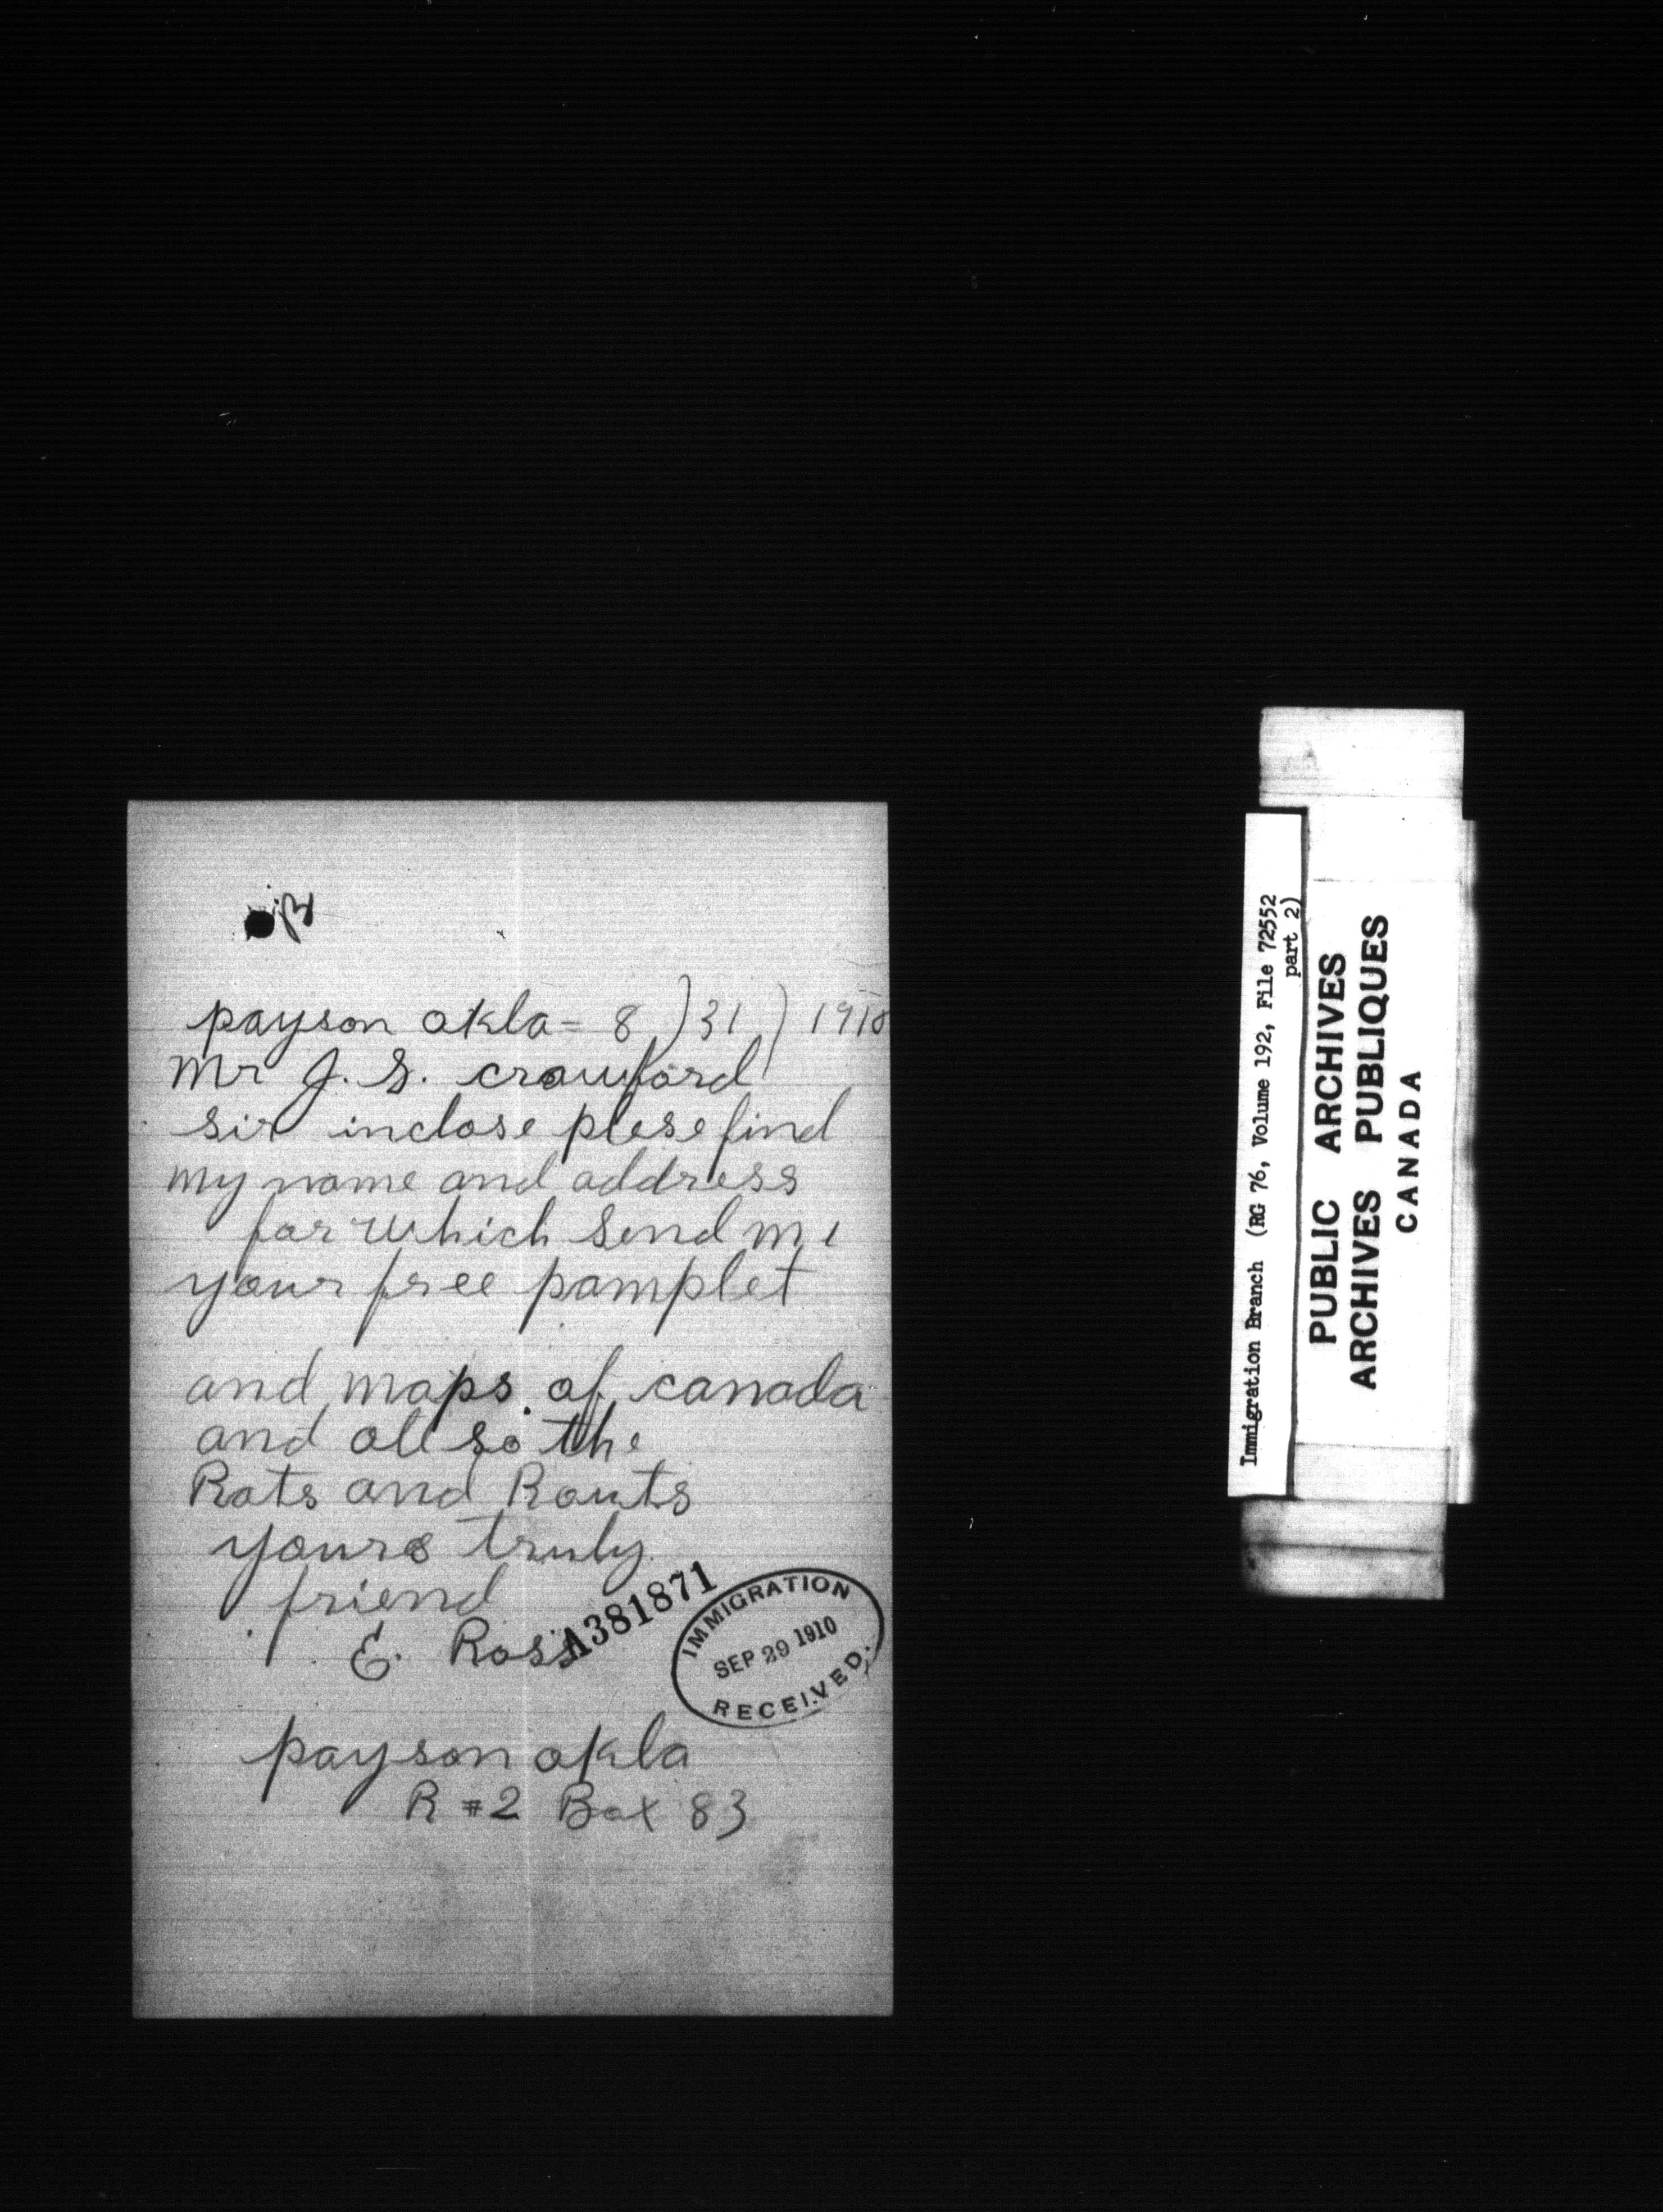 payson okla= 8 ) 31 ) 1910
Mr J. S. crawford
sir inclose plese find
my name and address
for which send me
your free pamplet
and maps of canada
and all so the
Rats and Routs
yours truly
friend
E. Ross
A381871
IMMIGRATION
SEP 29 1910
RECEIVED.
payson okla
R #2 Box 83
Immigration Branch (RG 76, Volume 192, File 72552
part 2)
PUBLIC ARCHIVES
ARCHIVES PUBLIQUES
CANADA